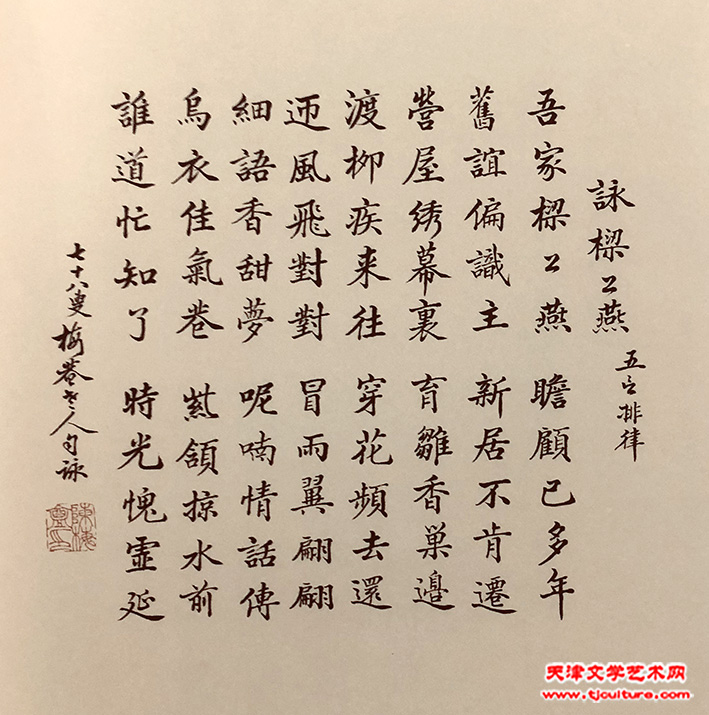 詠樑上燕 五言排律
吾家樑上燕 瞻顧已多年
舊誼偏識主 新居不肯遷
營屋綉幕裏 育雛香巢邊
渡柳疾来往 穿花頻去還
迊風飛對對 冒雨翼翩翩
細語香甜夢 呢喃情話傳
烏衣佳氣巷 紫頷掠水前
誰道忙知了 時光愧虛延
七十八叟梅巷老人自詠
天津文学艺术网
www.tjculture.com